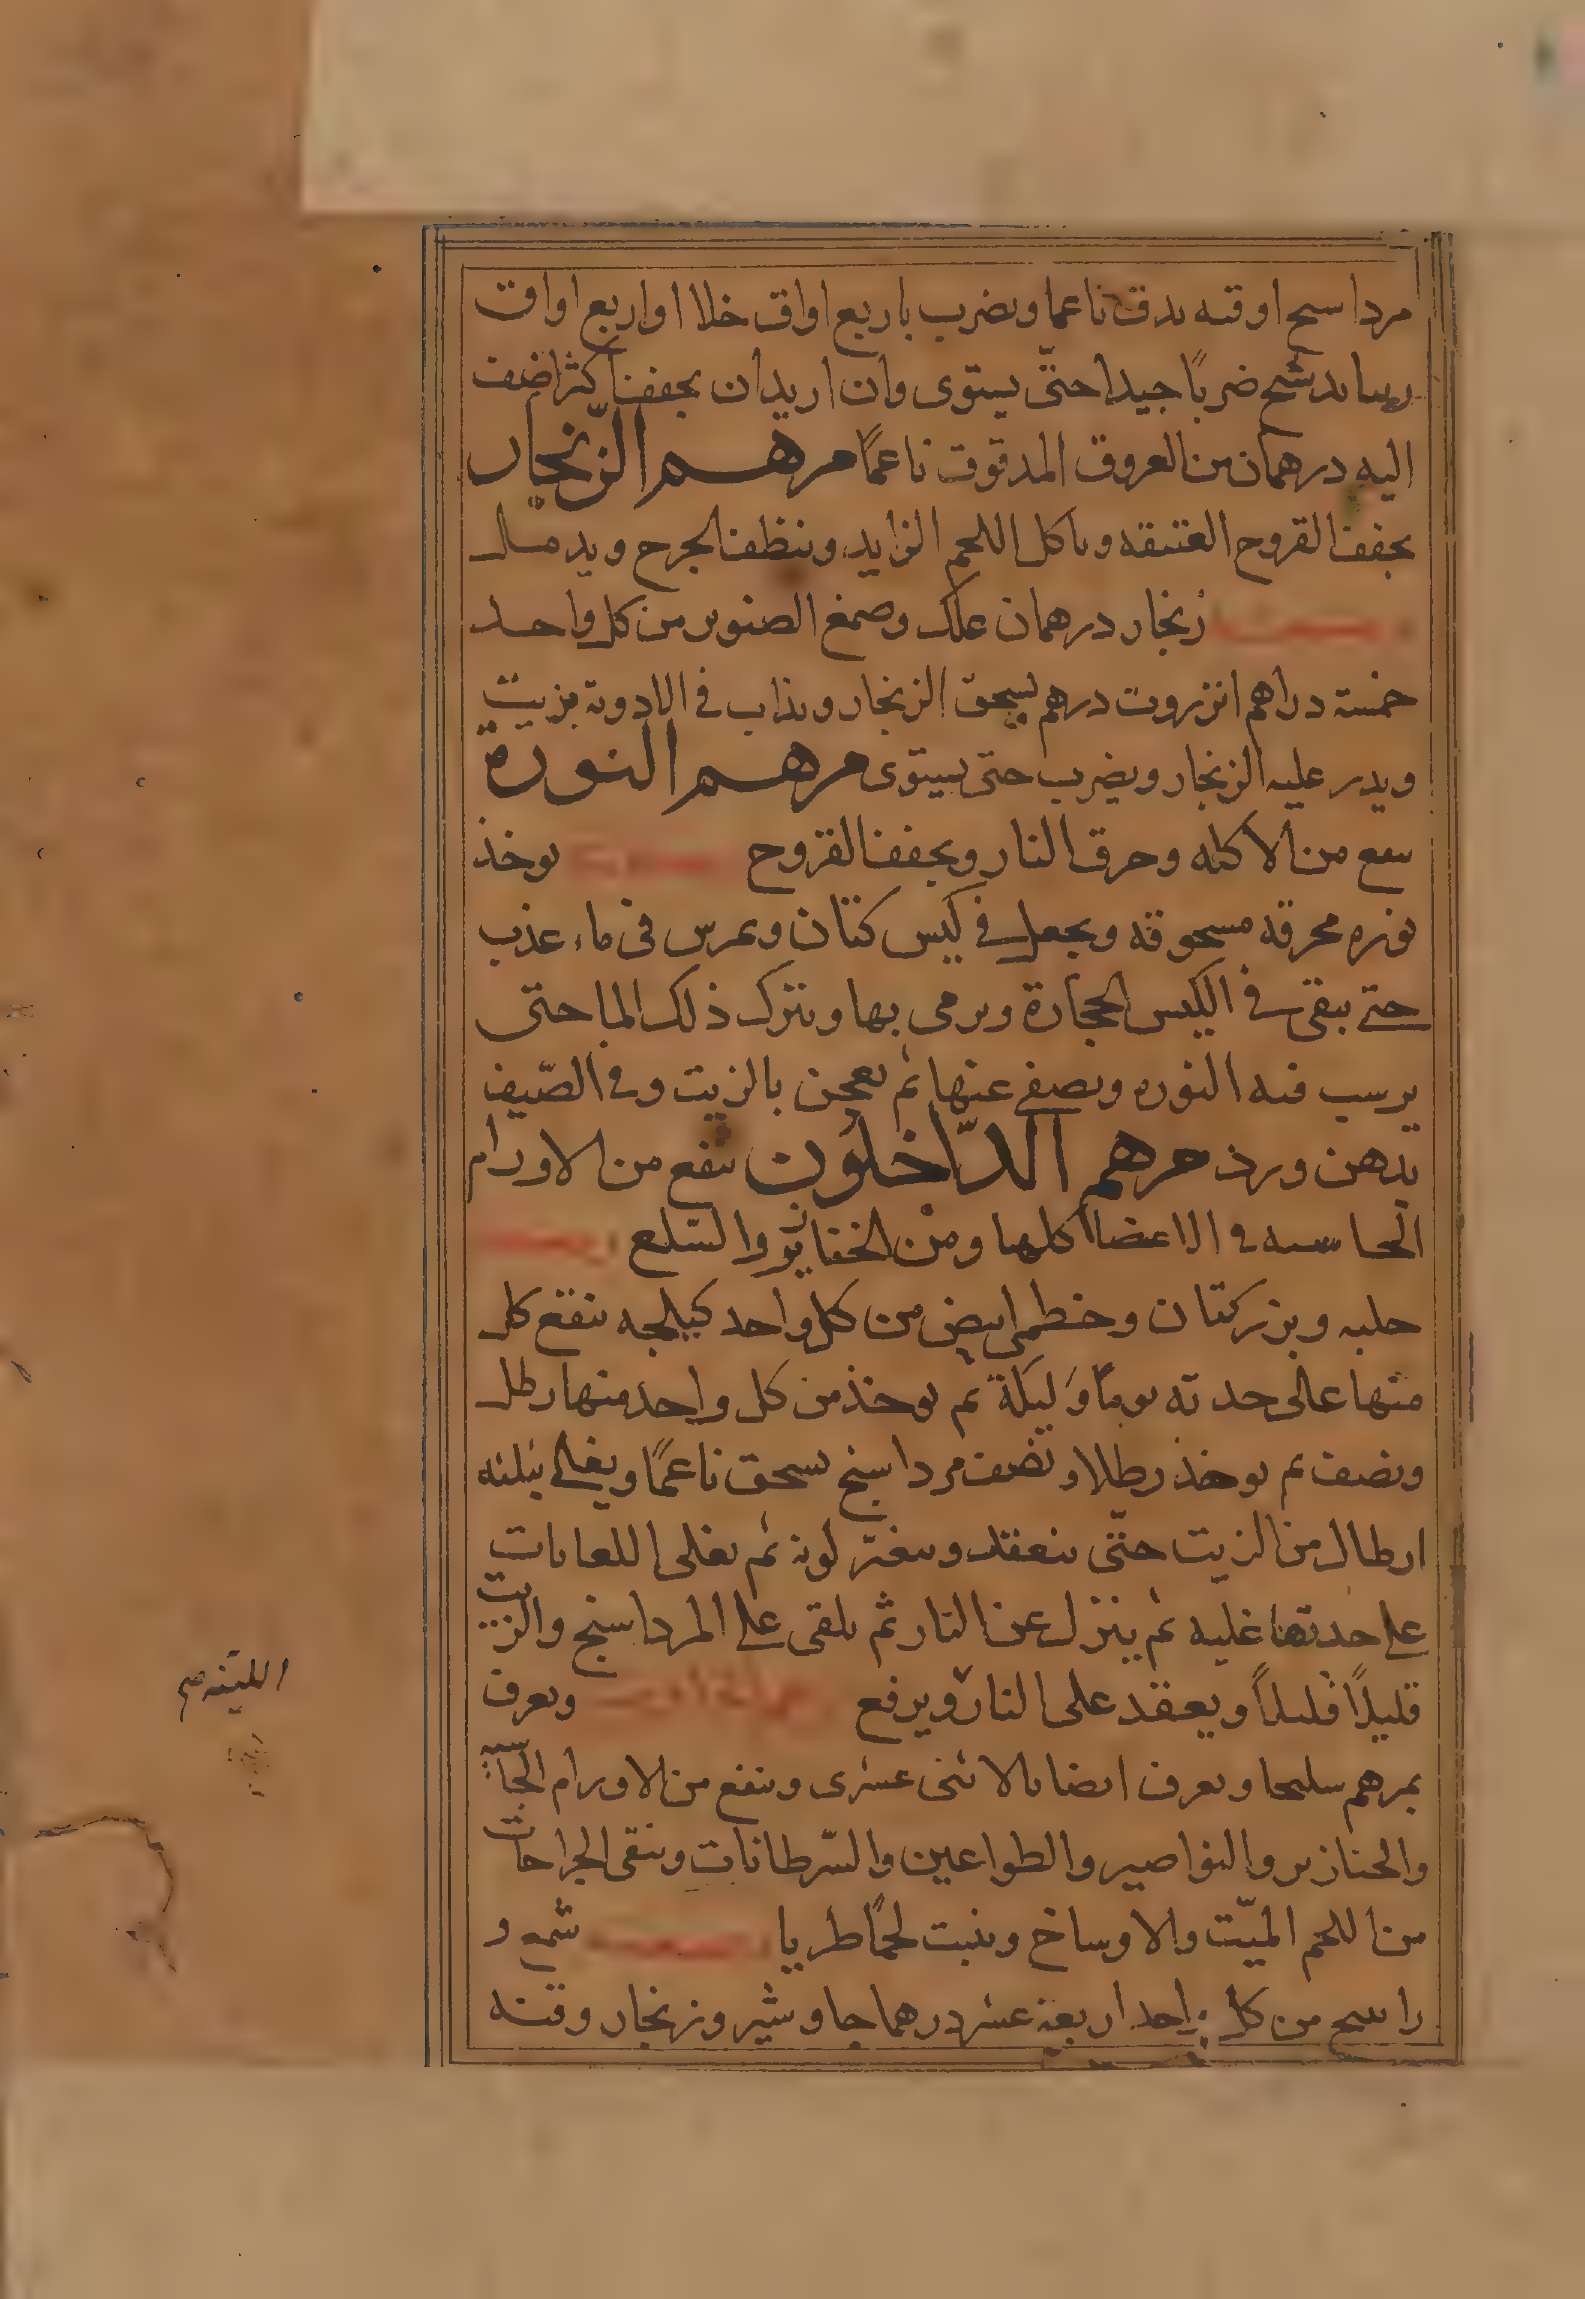 مرداسنج اوقيه يدق ناعما ويضرب باربع اواق خلا او اربع اواق
ضربًا جيدا حتّى يستوى وان اريد ان يجفف اكثر اضف
اليه درهمان من العروق المدقوق ناعمًا مرهم الزنجار
يجفف القروح العتيقه وياكل اللحم الزايد وينظف الجرح ويدمل
زنجار درهمان علك وصمغ الصنوبر من كل واحد
خمسة دراهم انزروت درهم يسحق الزنجار ويذاب فى الادوية بزيت
ويدر عليه الزنجار ويضرب حتى يستوى مرهم النورة
ينفع من الاكله وحرق النار ويجفف القروح يوخذ
نوره محرقه مسحوقه ويجعل فى كيس كتان ويمرس فى ماء عذب
حتى يبقى فى الكيس الحجارة ويرمى بها ويترك ذلك الما حتى
يرسب فيه النوره ويصفى عنها ثم يعجن بالزيت وفى الصّيف
بدهن ورد مرهم الدّاخلون ينفع من الاورام
الجاسيه فى الاعضا كلها ومن الخنازير والسّلع
حلبه وبزر كتان وخطمى ابيض من كل واحد كيلجه ينقع كل
منها على حدته يومًا وليلة ثم يوخذ من كل واحد منها رطل
ونصف ثم يوخذ رطلا ونصف مرداسنج يسحق ناعمًا ويغلى بثلثه
ارطال من الزيت حتّى ينعقد ويتغيّر لونه ثم يغلى اللعابات
على حدتها غليه ثم ينزل عن النار ثم يلقى على المرداسنج والزيت
قليلاً قليلاً ويعقد على النار ويرفع ويعرف
بمرهم سليحا ويعرف ايضا بالاثنى عشرى وينفع من الاورام الجاسيه
والخنازير والنواصير والطواعين والسّرطانات وينقى الجراحات
من اللحم الميّت والاوساخ وينبت لحمًا طريا شمع و
راسح من كل واحد اربعة عشر درهما جاوشير وزنجار وقنه